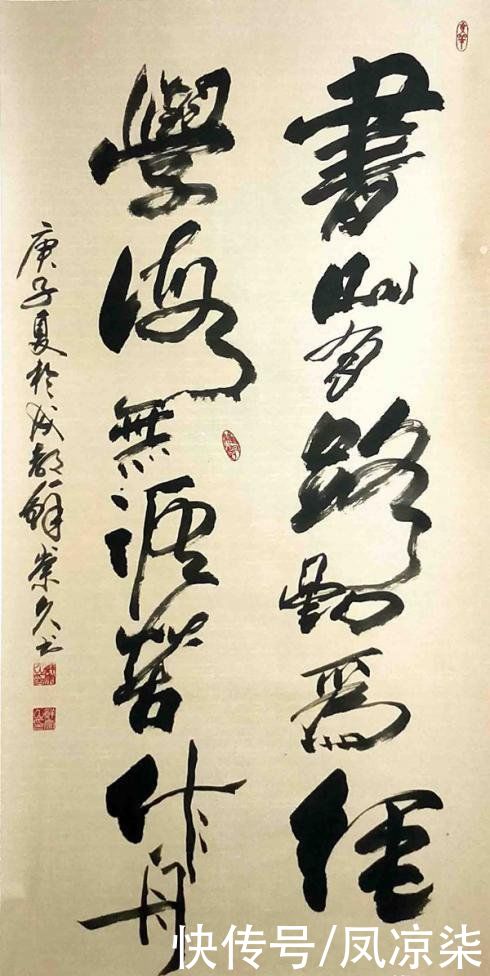 書山有路勤爲徑
學海無涯苦作舟
庚子夏於成都崇久书
快传号/凤凉柒